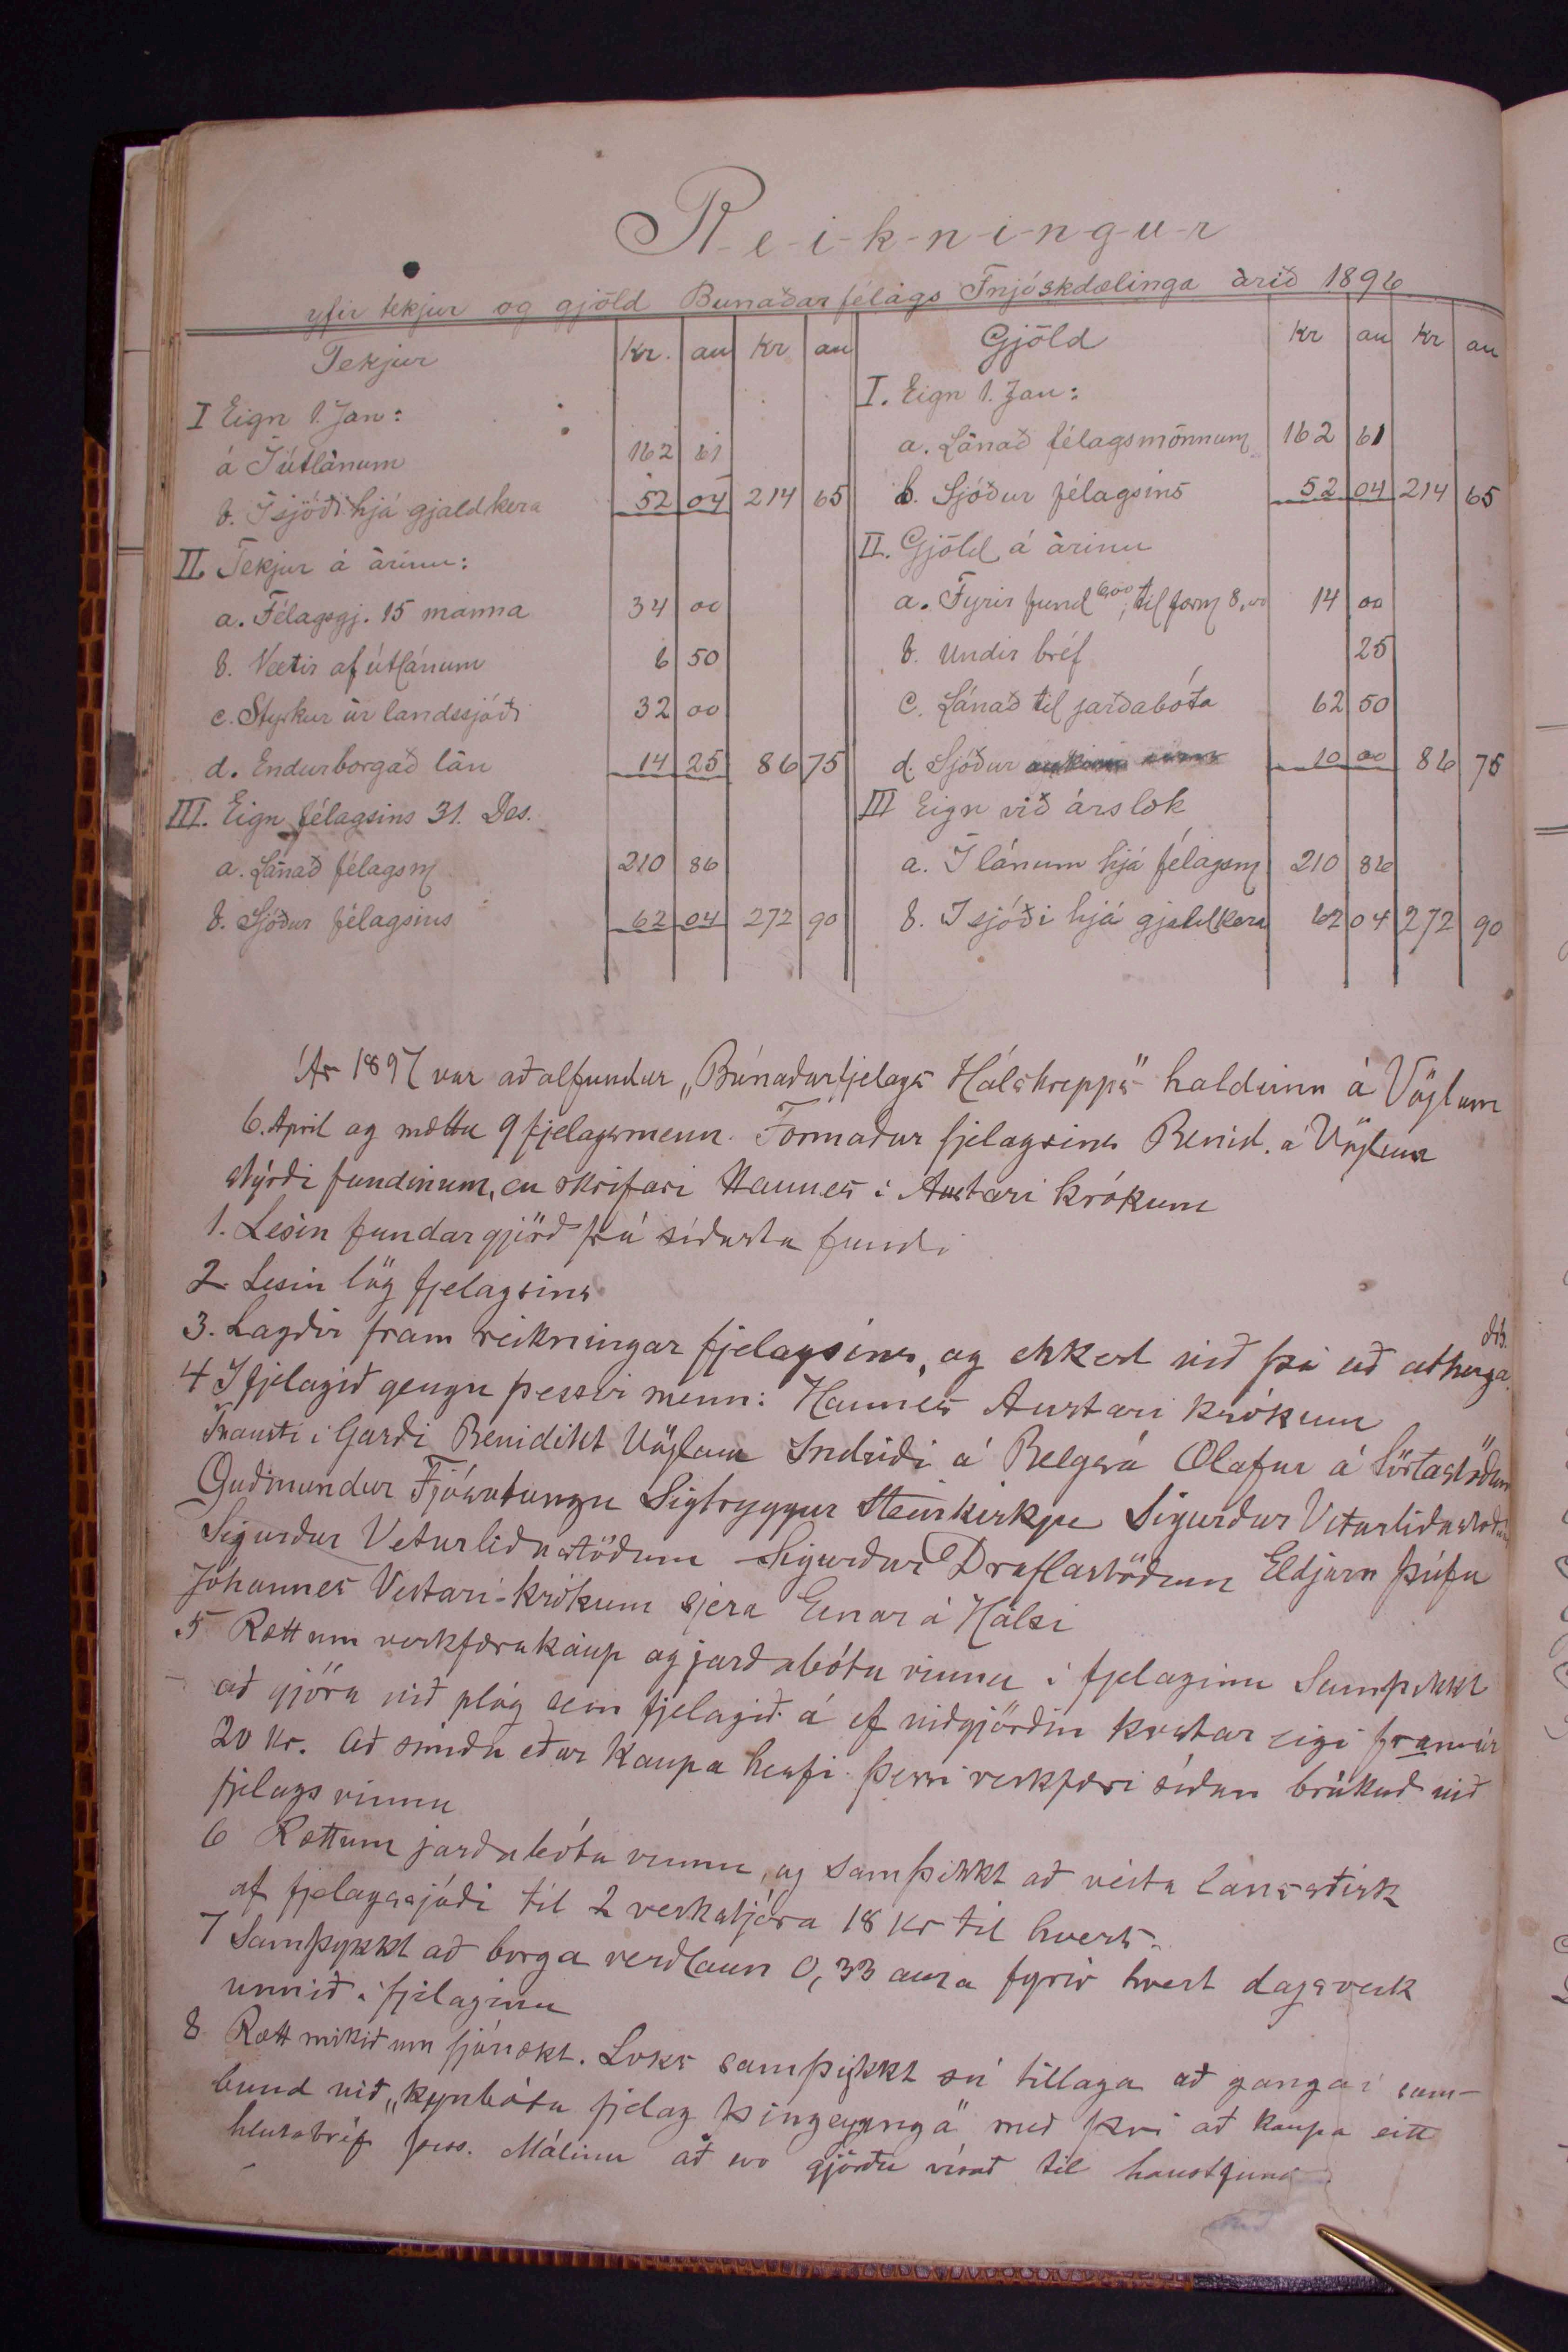 R-e-i-k-n-i-n-g-u-r
yfir tekjur og gjöld Bunaðarfélags Fnjóskdælinga árið 1896
Tekjur Kr. au Kr au
I Eign 1. Jan:
á Í útlánum 162 61
b. Í sjóði hjá gjaldkera 52 04 214 65
II. Tekjur á árinu:
a. Félagsgj. 15 manna 34 00
b. Vextir af útlánum 6 50
c. Styrkur úr landssjóði 32 00
d. Endurborgað lán 14 25 86 75
III. Eign félagsins 31. Des.
a. Lánað félagsm 210 86
b. Sjóður félagsins 62 04 272 90
Gjöld Kr au Kr au
I. Eign 1. Jan:
a. Lánað félagsmönnum 162 61
b. Sjóður félagsins 52 04 214 65
II. Gjöld á árinu
a. Fyrir fund 6,00, til form 8,00 14 00
b. Undir bréf 25
c. Lánað til jarðabóta 62 50
d. Sjóður 10 00 86 75
III Eign við árslok
a. Í lánum hjá félagsm 210 86
b. Í sjóði hjá gjaldkera 62 04 272 90
Ár 1897 var aðalfundur „Búnaðarfjelags Hálshrepps" haldinn á Vöglum
6. April og mættu 9 fjelagsmenn. Formaður fjelagsins Benid. á Vöglum
stýrði fundinum, en skrifari Hannes í Austari krókum
1. Lesin fundargjörð frá síðasta fundi
2 Lesin lög fjelagsins
3. Lagðir fram reikningar fjelagsins, og ekkert við þá að athuga.
4 Í fjelagið gengu þessir menn: Hannes Austari krókum
Trausti í Garði Benidikt Vöglum Indriði á Belgsá Olafur á Sörlastöðum
Guðmundur Fjósatungu Sigtryggur Steinkirkju Sigurður Veturliðastöðum
Sigurður Veturliðastöðum Sigurður Draflastöðum Eldjarn Þúfu
Jóhannes Vestari-krókum sjera Einar á Hálsi
5 Rætt um verkfærakaup og jarðabóta vinnu í fjelaginu Samþikkt
að gjöra við plóg sem fjelagið á ef viðgjörðin kostar eigi framúr
20 Kr. Að smíða eður kaupa herfi. Þessi verkfæri síðan brúkuð við
fjelags vinnu
6 Rætt um jarðabóta vinnu, og samþikkt að veita Lánsstirk
af fjelagssjóði til 2 verkstjóra 18 Kr til hvers.
7 Samþykkt að borga verðlaun 0,33 aura fyrir hvert dagsverk
unnið í fjelaginu
8 Rætt mikið um fjárrækt. Loks samþikkt sú tillaga að ganga í sam-
bund við „Kynbóta fjelag Þingeyinga" með því að kaupa eitt
hlutabréf þess. Málinu að svo gjörðu vísað til haustfund